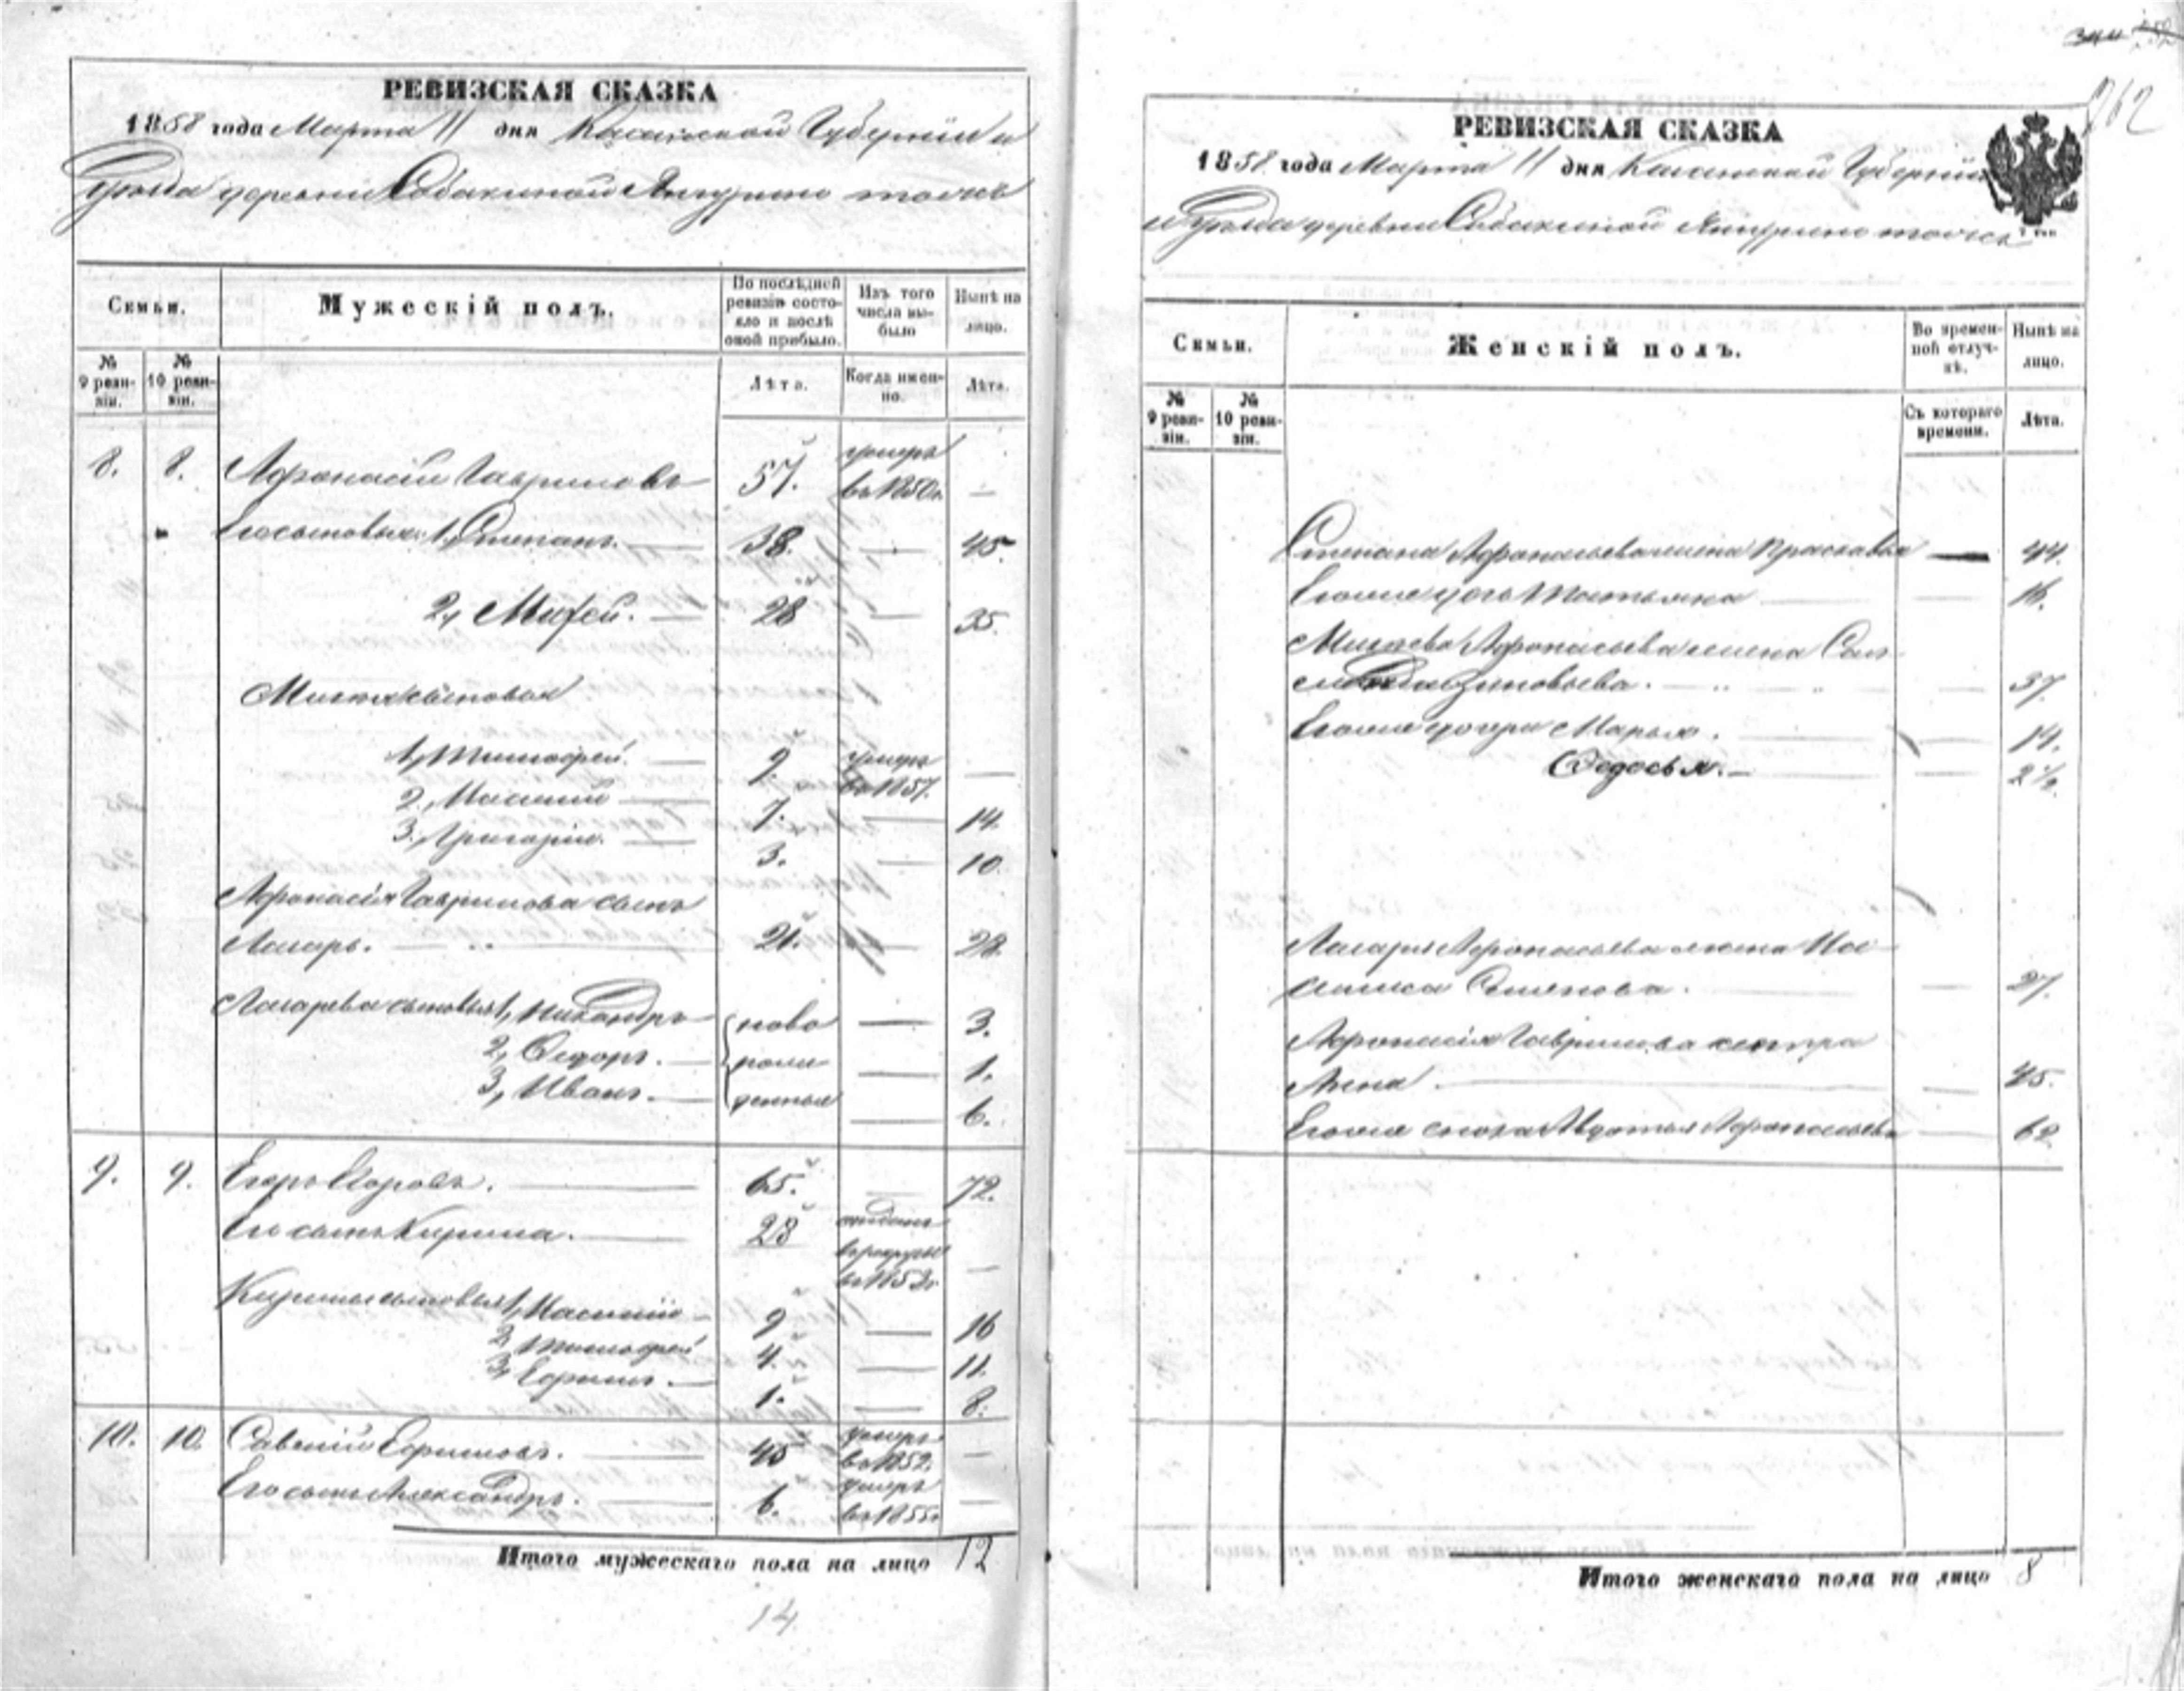 РЕВИЗСКАЯ СКАЗКА
1858 года Марта 11 дня Казанской Губернии и
Уѣзда деревни Собакиной Янгурино тожъ
Семьи.
Мужескій полъ.
По послѣдней ревизіи состояло и послѣ оной прибыло.
Изъ того числа выбыло
Нынѣ на лицо.
№ 9 ревизіи.
№ 10 ревизіи.
Лѣта.
Когда именно.
Лѣта.
8. 8. Афонасій Гавриловъ 57. умеръ въ 1850 г. —
Его сыновья: 1, Степанъ. — 38. — 45.
2, — 28 — 35.
сыновья
1, Тимофей. — 9. умеръ въ 1857. —
2, — 7. — 14.
3, Григорій. — 3. — 10.
Афонасія Гаврилова сынъ
Лазарь. — 21. — 28.
Лазарева сыновья 1, Никандръ ново — 3.
2, Ѳедоръ. — рож — 1.
3, Иванъ. — денные — 6.
9. 9. Егоръ — 65. — 72.
Его сынъ Кирила. — 28 отданъ въ рекруты въ 1853 г. —
Кирилы сыновья 1, — 9 — 16
2, Тимофей 4. — 11.
3, Ефимъ. — 1. — 8.
10. 10. Савелій Ефимовъ. — 45 умеръ въ 1852. —
Его сынъ Александръ. — 6. умеръ въ 1855 г. —
Итого мужескаго пола на лицо 12
14
262
РЕВИЗСКАЯ СКАЗКА
1858 года Марта 11 дня Казанской Губерніи
и Уѣзда деревни Собакиной Янгурино тожъ
Семьи.
Женскій полъ.
Во временной отлучкѣ.
Нынѣ на лицо.
№ 9 ревизіи.
№ 10 ревизіи.
Съ котораго времени.
Лѣта.
Степана Афонасьева жена Прасковья — 44.
Его же дочь Татьяна — 16.
Афонасьева жена
Зиновьева. — 37.
Его же дочери Марья. — 14.
Ѳедосья. — 2 1/2.
Лазаря Афонасьева жена
Семенова. — 27.
Афонасія Гаврилова сестра
Анна. — 45.
Его же сноха Авдотья Афонасьева — 62.
Итого женскаго пола на лицо 8